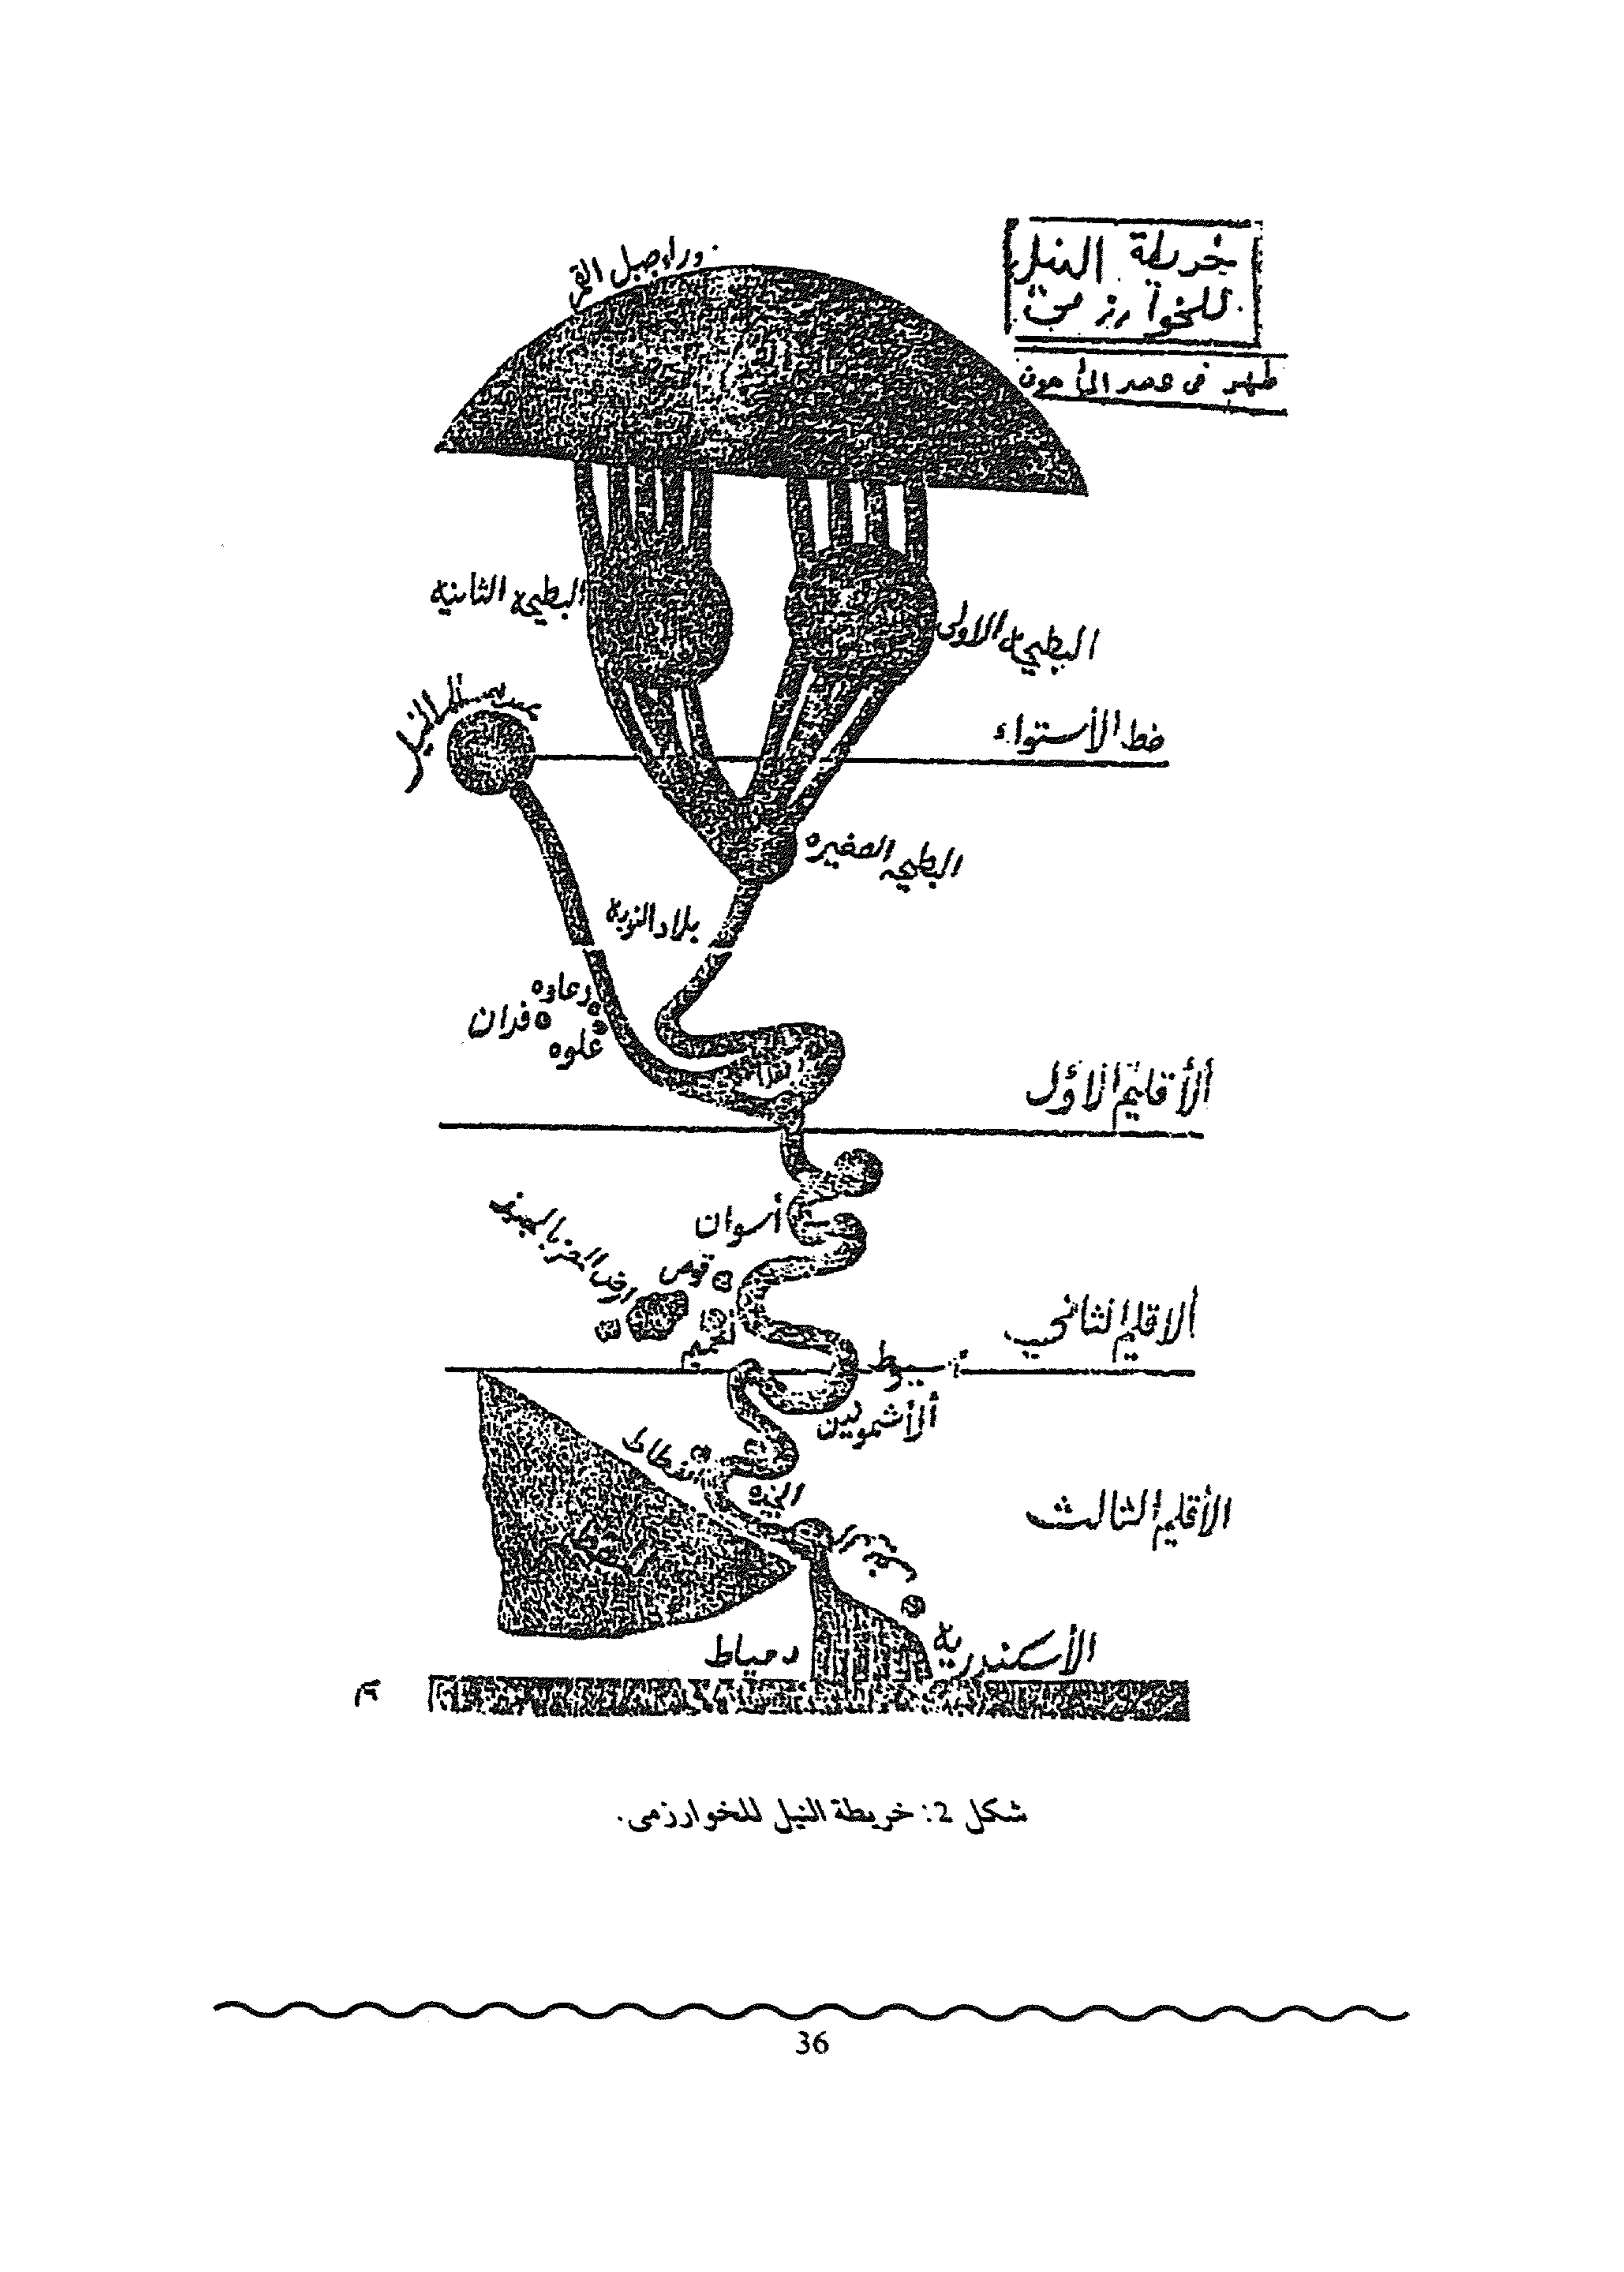 خريطة النيل
للخوارزمى
ظهر فى عصر المأمون
وراء جبل القمر
البطيحة الثانية
البطيحة الاولى
خط الأستواء
البطيحه الصغيره
بلاد النوبة
فران
علوه
الأقليم الاؤل
أسوان
قوص
الاقليم الثانى
أخميم
الأشمونين
الأقليم الثالث
الأسكندرية
دمياط
شكل 2: خريطة النيل للخوارزمى.
36